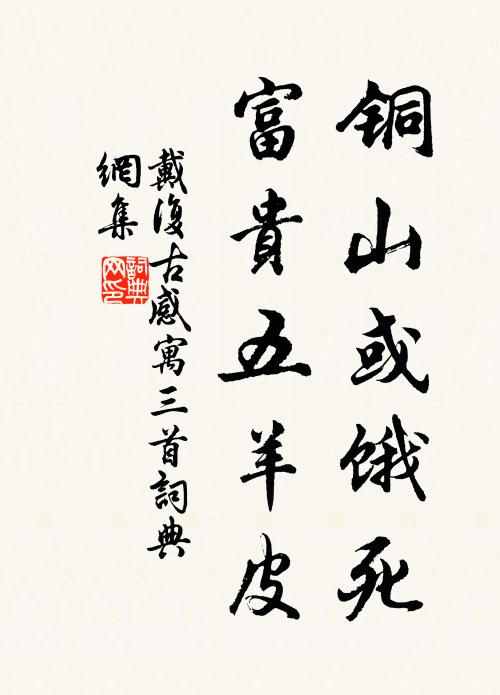 铜山或饿死
富貴五羊皮
戴復古感寓三首詞典
網集
詞典
网印